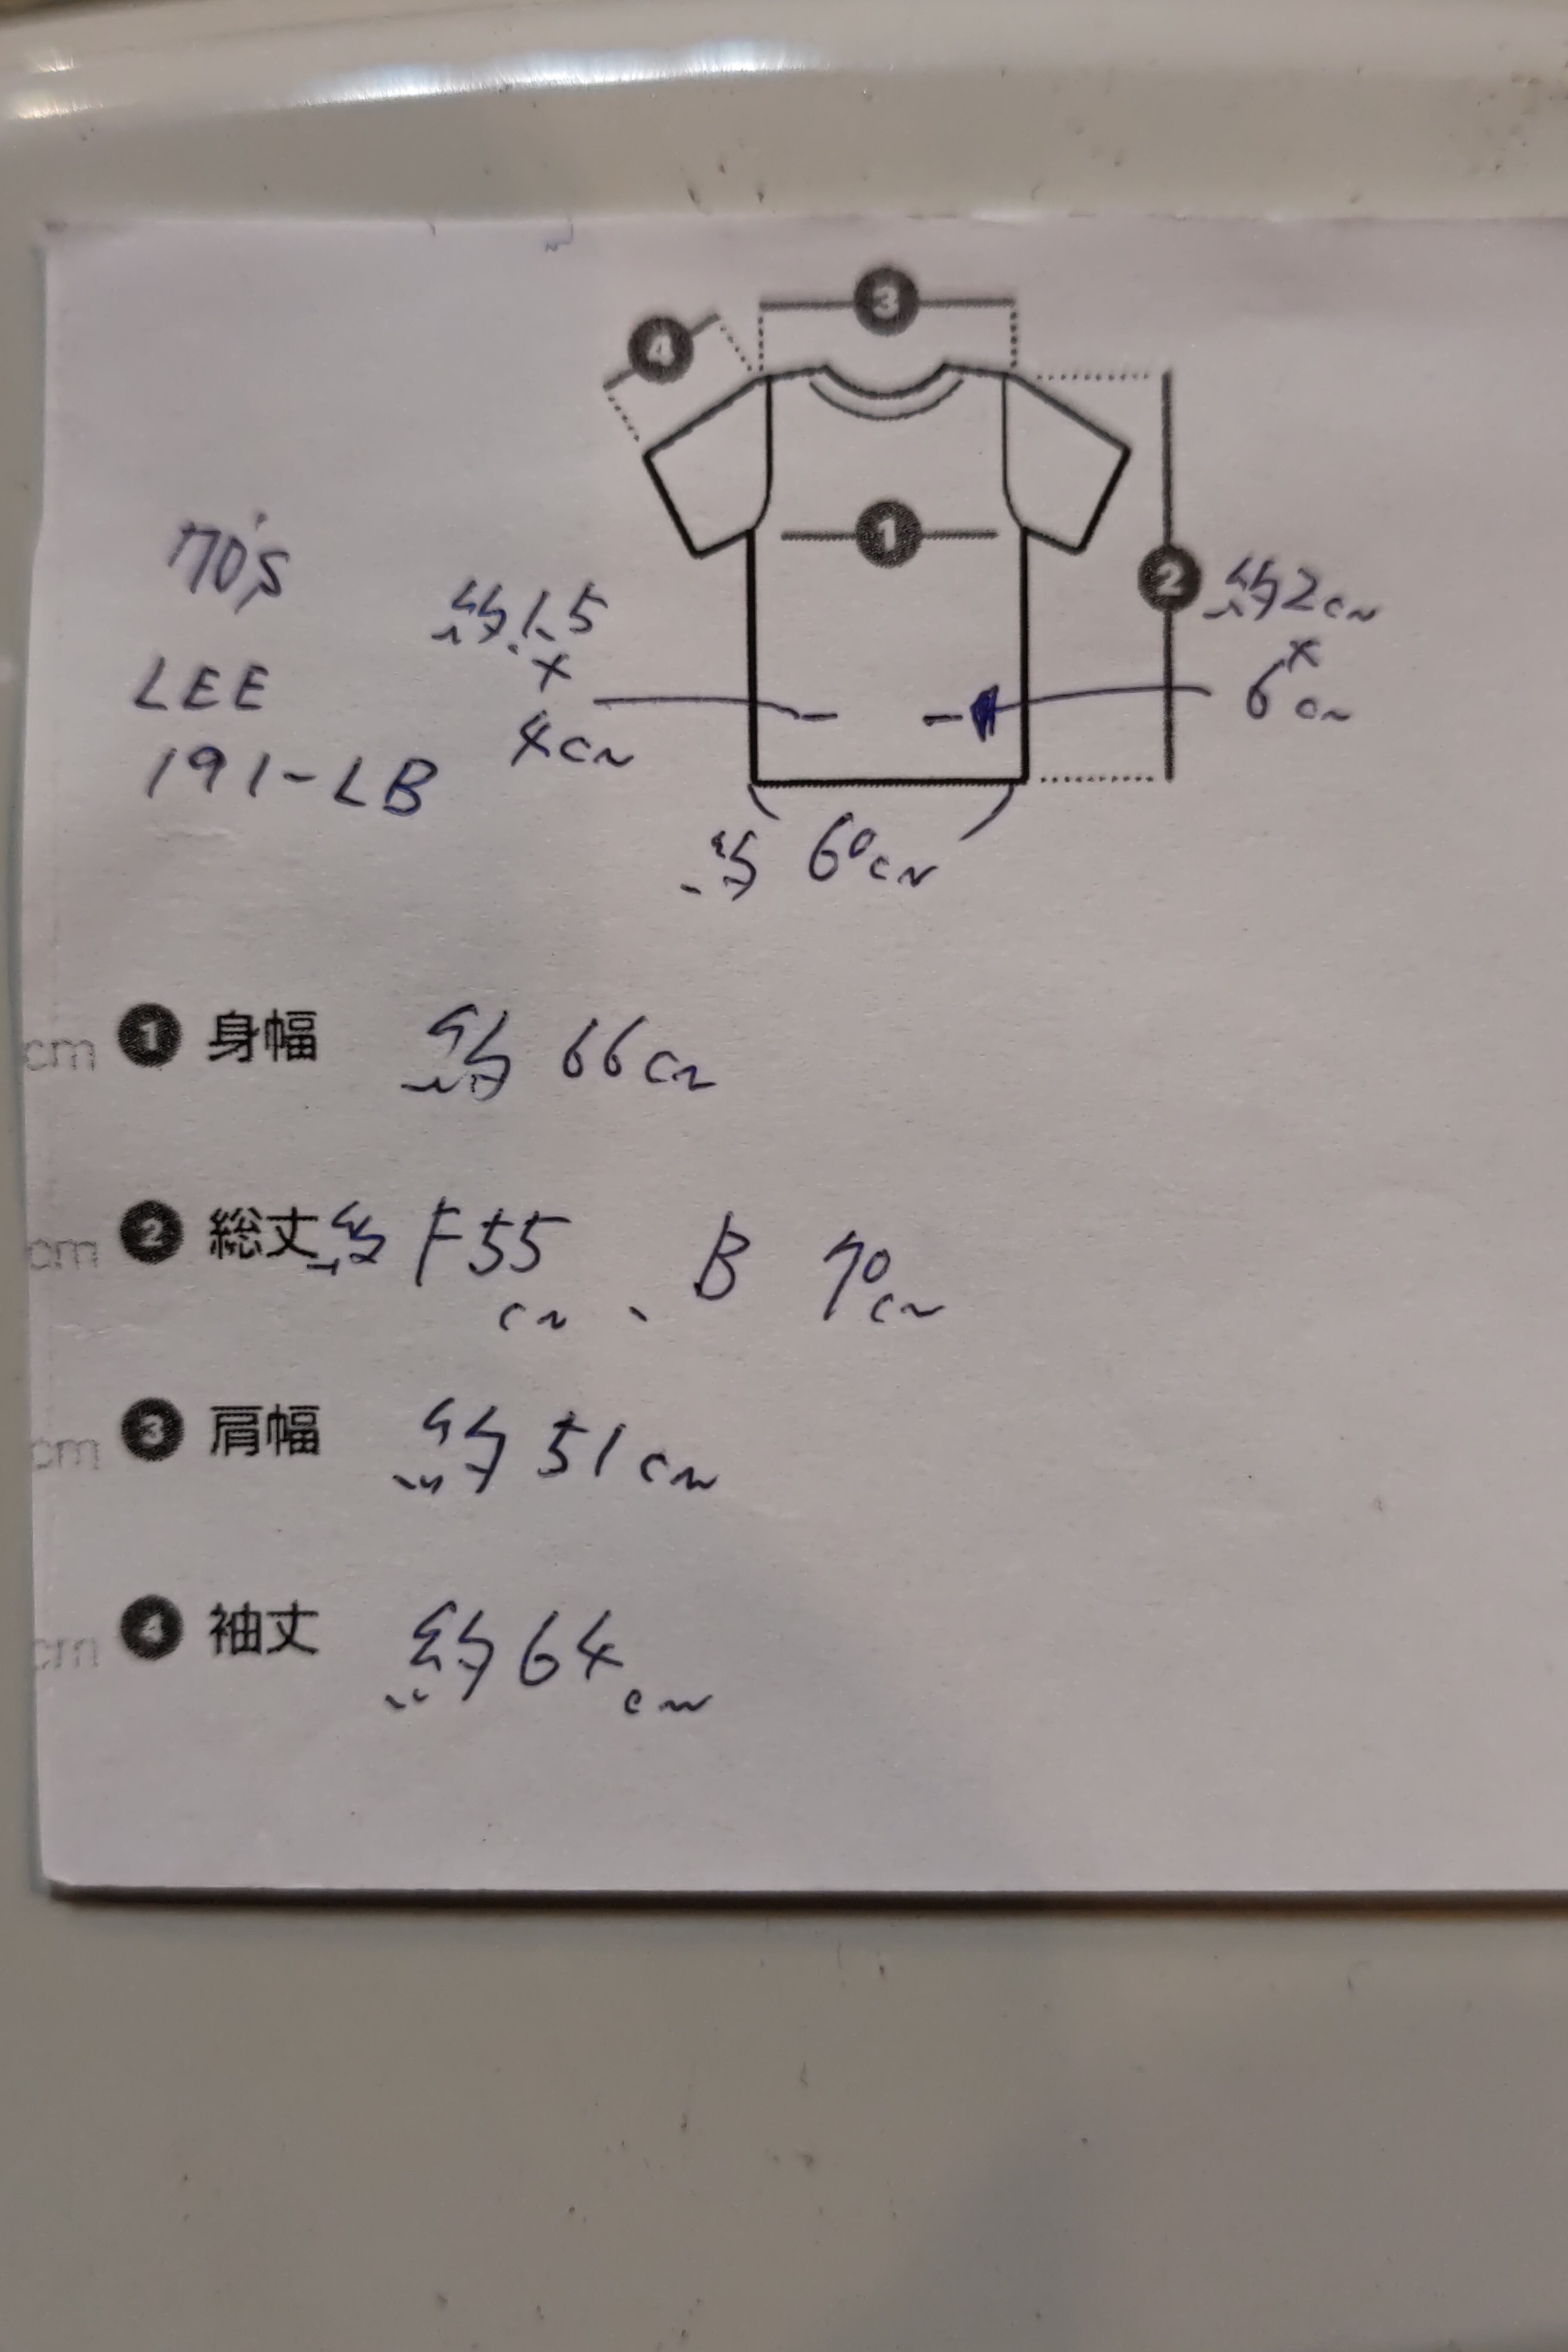 3
4
1
2
70's
LEE
191-LB
約1.5
×
4cm
約2cm
×
6cm
約 60cm
cm 1 身幅 約 66cm
cm 2 総丈 約 F55cm、B 70cm
cm 3 肩幅 約 51cm
cm 4 袖丈 約 64cm